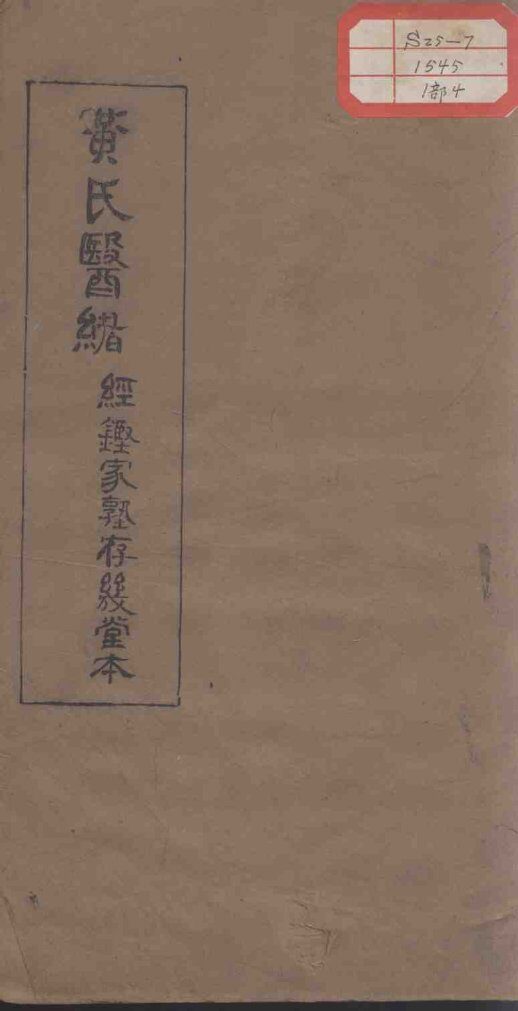 S25-7
1545
1部4
黄氏醫緒
經鏗家塾存幾堂本